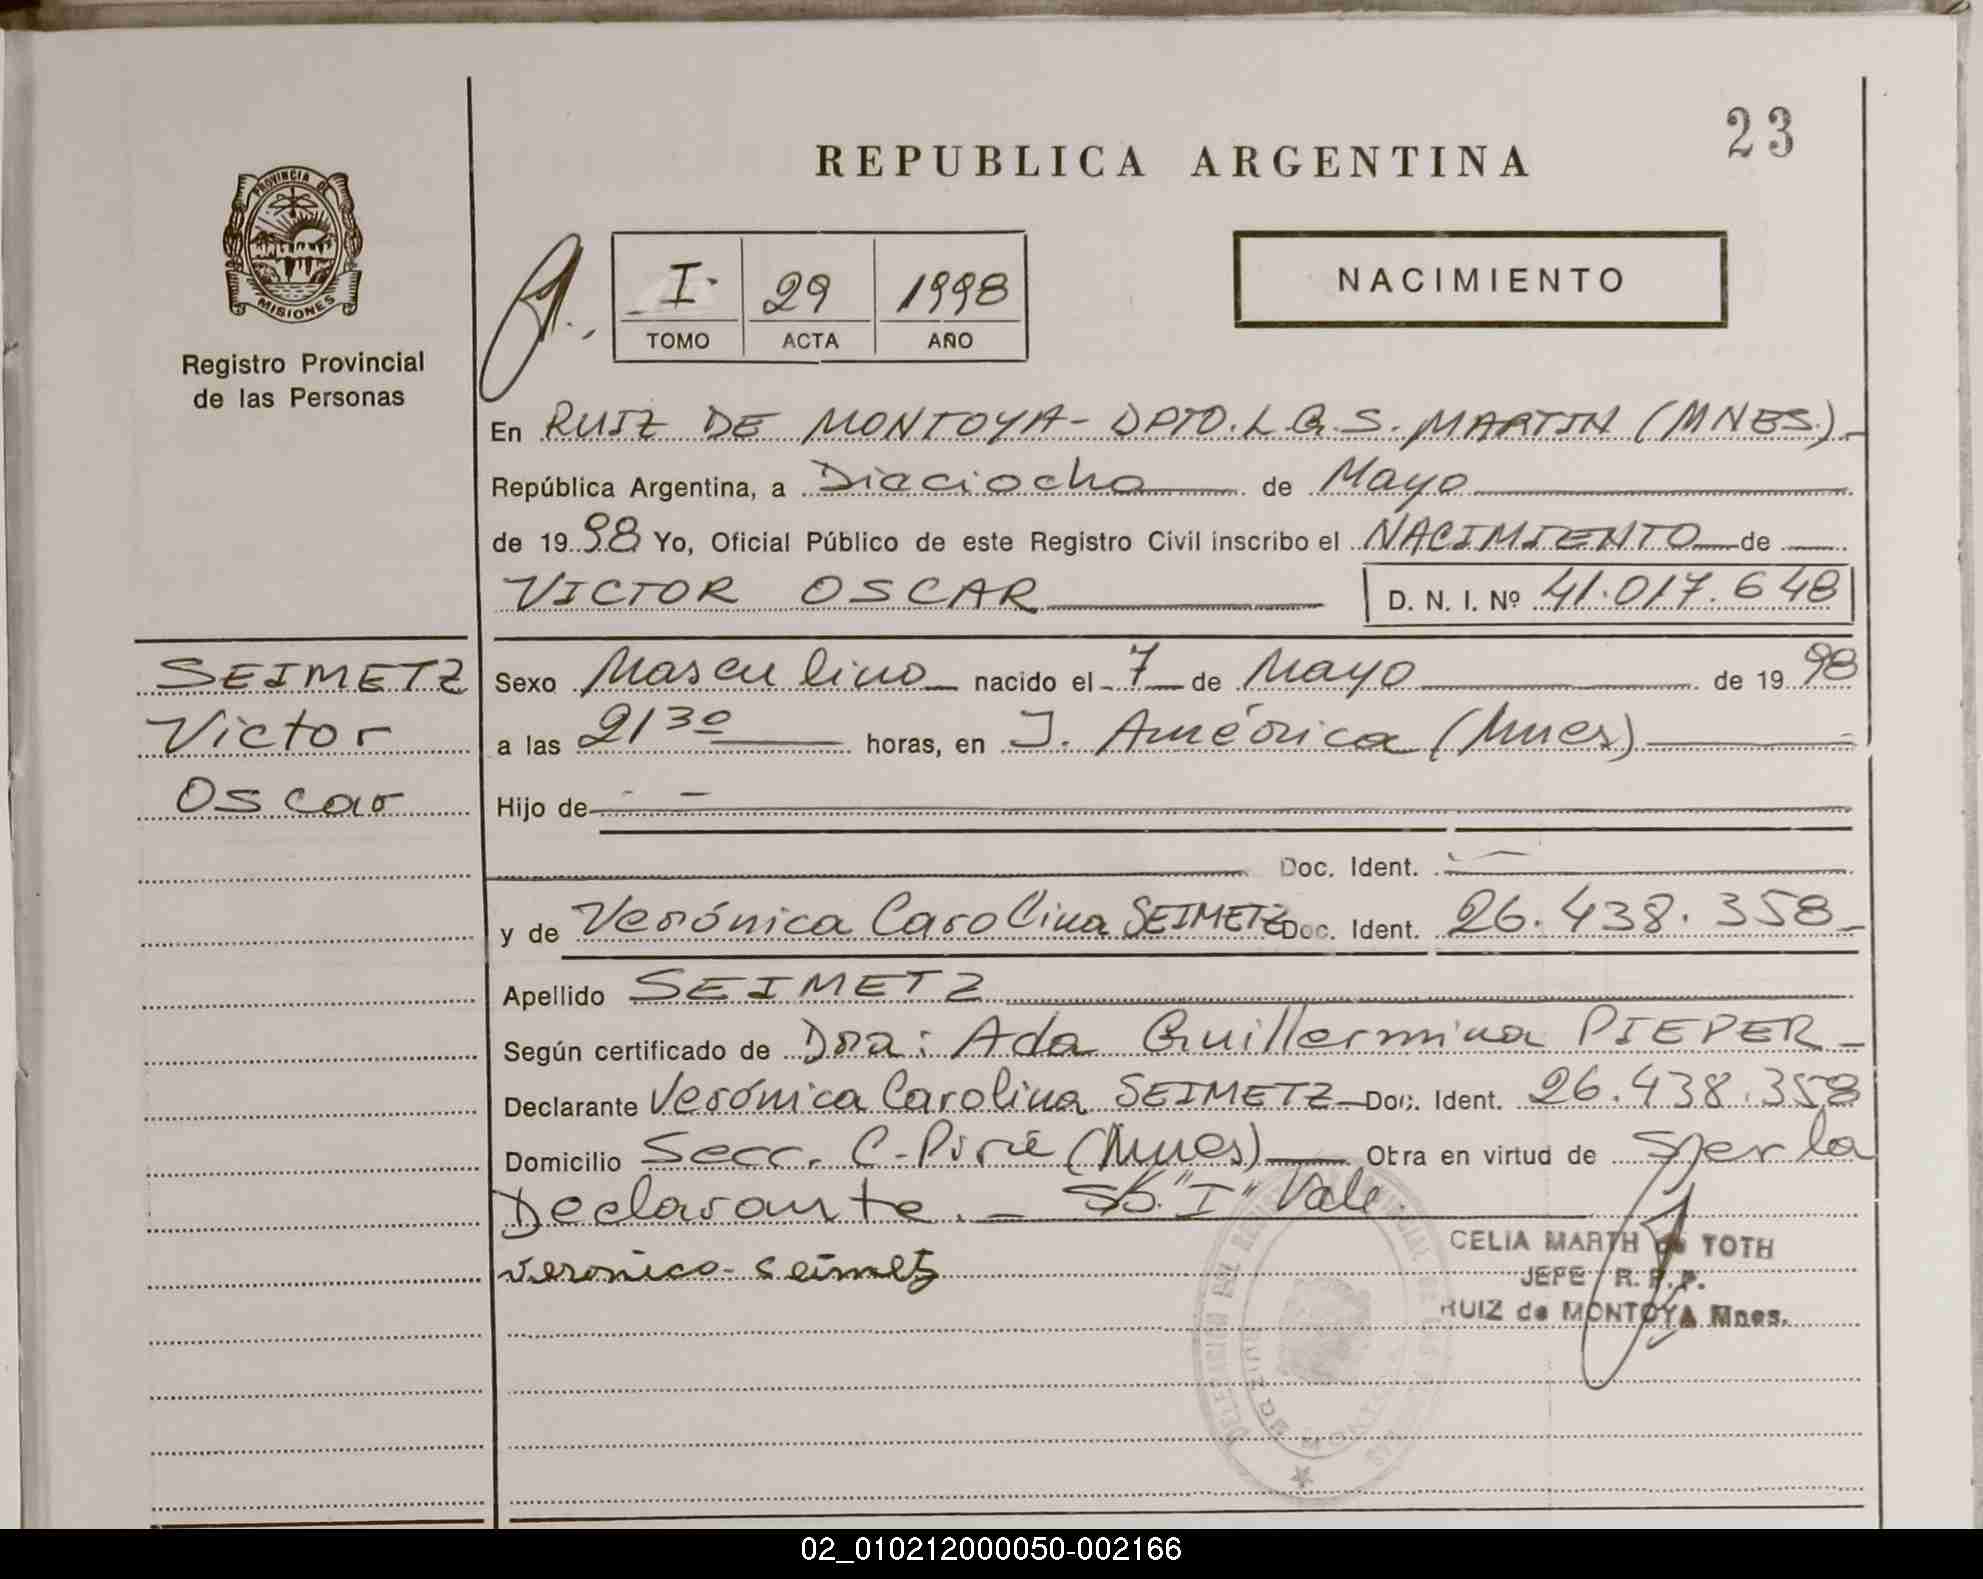 23
REPUBLICA ARGENTINA
PROVINCIA DE
MISIONES
Registro Provincial
de las Personas
I. 29 1998
TOMO ACTA AÑO
NACIMIENTO
En RUIZ DE MONTOYA - DPTO. L.G.S. MARTIN (MNES.)
República Argentina, a Dieciocho de Mayo
de 1998 Yo, Oficial Público de este Registro Civil inscribo el NACIMIENTO de
VICTOR OSCAR D. N. I. Nº 41.017.648
SEIMETZ
Victor
Oscar
Sexo Masculino nacido el 7 de Mayo de 1998
a las 21 30 horas, en J. América (Mnes)
Hijo de
Doc. Ident.
y de Verónica Carolina SEIMETZ Doc. Ident. 26.438.358
Apellido SEIMETZ
Según certificado de Dra: Ada Guillermina PIEPER
Declarante Verónica Carolina SEIMETZ Doc. Ident. 26.438.358
Domicilio Secc. C-Pirie (Mnes) Obra en virtud de ser la
Declarante. - "I" Vale.
veronica seimetz
CELIA MARTH de TOTH
JEFE R. P. P.
RUIZ de MONTOYA Mnes.
02_010212000050-002166